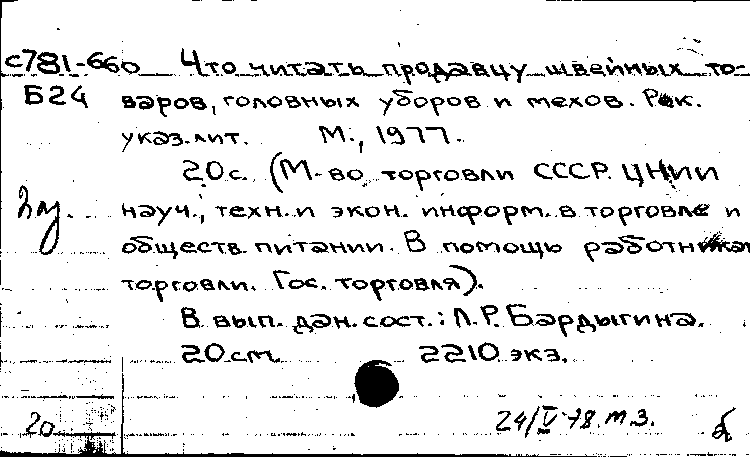 с781-660 Что читать продавцу швейных то-
Б24 варов, головных уборов и мехов. Рек.
указ. лит. М., 1977.
20 с. (М-во торговли СССР. ЦНИИ
науч., техн. и экон. информ. в торговле и
обществ. питании. В помощь работникам
торговли. Гос. торговля).
В вып. дан. сост.: Л.Р. Бардыгина.
20 см. 2210 экз.
20 24/V-78. т.з.